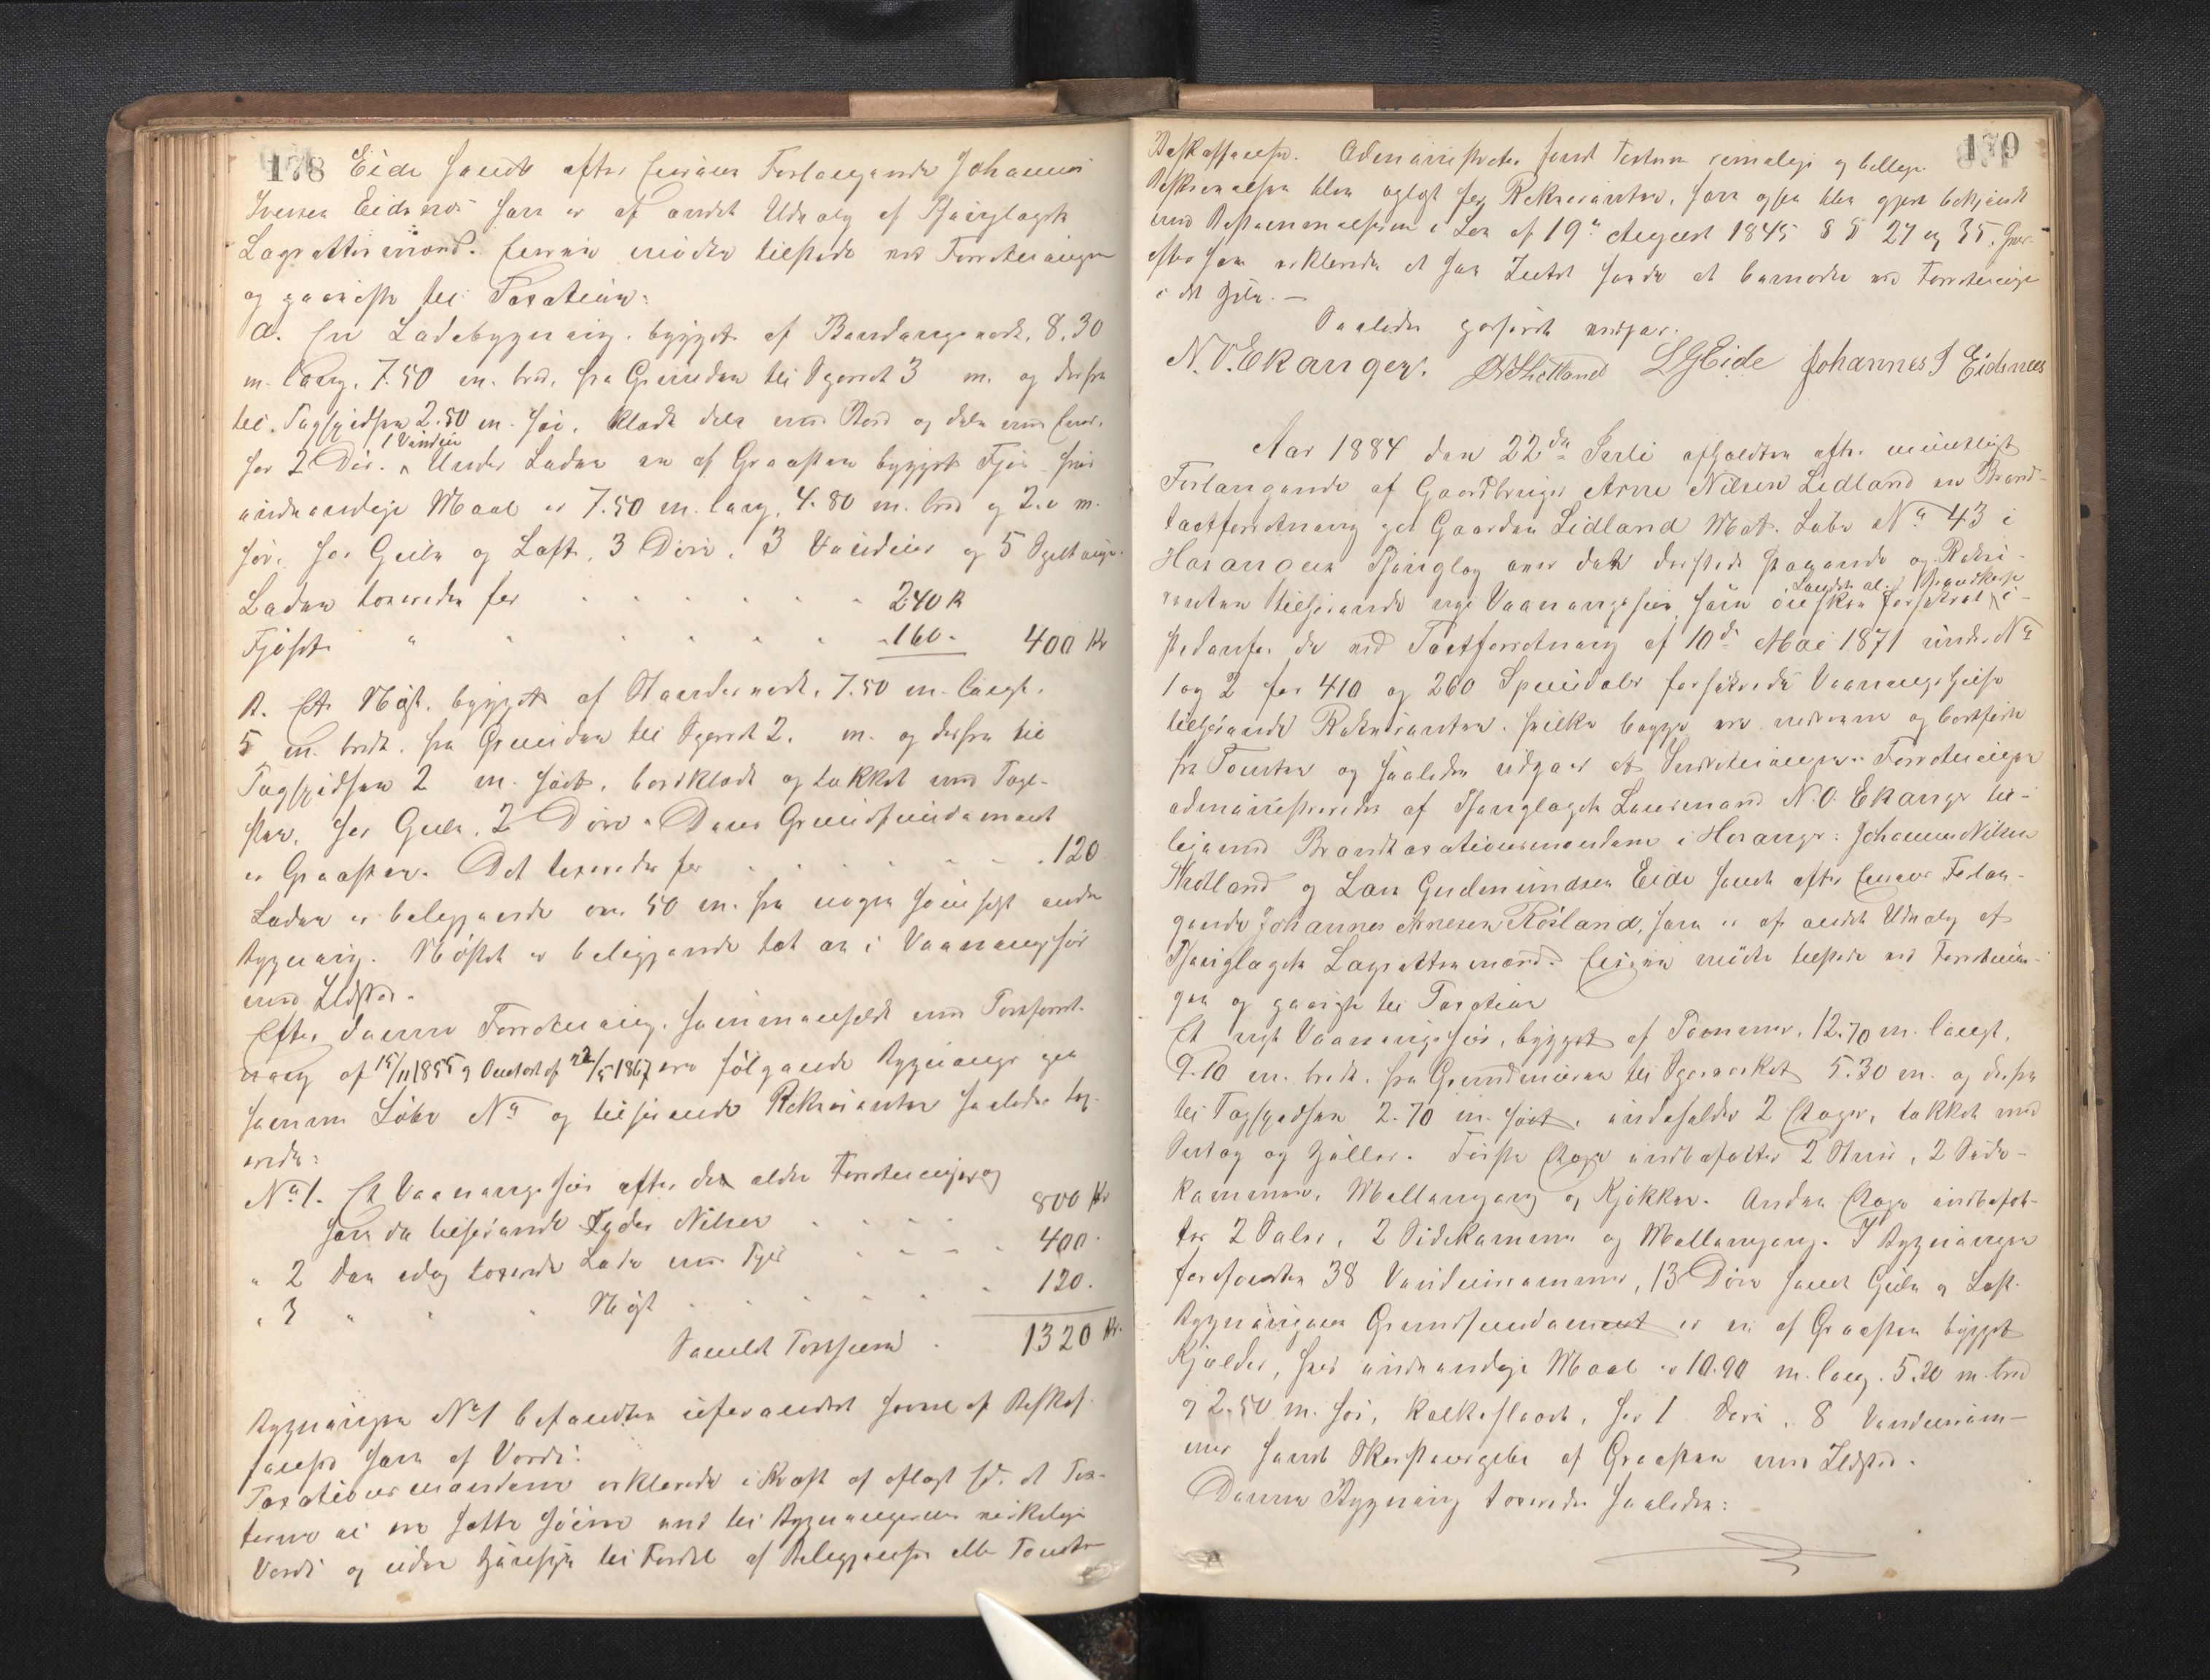 178
Eide samt efter hans Forlangende Johannes
Iversen Eidsnes som er af andet Udvalg af Thinglagets
Lagrettesmænd. Eieren mødte tilstede ved Forretningen
og paaviste til Taxation:
a. En Ladebygning, bygget af Bindingsverk, 8.30
m. lang, 7.50 m. bred, fra Grunden til Sperret 3 m. og derfra
til Tagspidsen 2.50 m. høi, klædt dels med Bord og dels med
har 2 Døre. 1 Vindue Under Laden en af Graasten bygget Fjøs hvis
indvendige Maal er 7.50 m. lang, 4.80 m. bred og 2.0 m.
høi, har Gulv og Loft, 3 Døre, 3 Vinduer og 5
Laden taxeredes for 240 K
Fjøset " " 160. 400 Kr
B. Et Nøst, bygget af Stavverk, 7.50 m. langt,
5 m. bredt, fra Grunden til Sperret 2. m. og derfra til
Tagspidsen 2 m. høit, bordklædt og tækket med Tag-
sten, har Gulv, 2 Døre. Dens Grundfundament
er Graasten. Det taxeredes for 120
Laden er beliggende ca. 50 m. fra nogen som helst anden
Bygning. Nøstet er beliggende tæt ved Vaaningshus
med Ildsted.
Efter denne Forretning, sammenholdt med Taxtforret-
ning af 15/11 1855 og Omtaxt af 22/5 1867 ere følgende Bygninger paa
samme Løbe No og tilhørende Rekvirenten saaledes tax-
erede:
No 1. Et Vaaningshus efter den ældre Forretning og
som da tilhørende Peder Nilsen 800 Kr
" 2 Den idag taxerede Lade med Fjøs 400.
" 3 " " " Nøst 120.
Samlet Taxtsum 1320 Kr.
Bygningen No 1 befandtes uforandret saavel af Beskaf-
fenhed som af Værdi.
Taxationsmændene erklærede i Kraft af aflagt Ed, at Tax-
terne ei ere satte høiere end til Bygningernes virkelige
Værdi og uden Hensyn til Fordel af Beliggenhed eller Tomtens
179
Beskaffenhed. Administrator fandt Taxten rimelig og billig.
Beskrivelsen blev oplæst for Rekvirenten, som ogsaa blev gjort bekjendt
med Bestemmelserne i Lov af 19de August 1845 §§ 27 og 35, hvor-
efter han erklærede at han Intet havde at bemærke ved Forretningen
i det Hele. —
Saaledes passeret
N.O. Ekanger. LGEide Johannes I Eidnes
Aar 1884 den 22de Juli afholdtes efter mundtligt
Forlangende af Gaardbruger Arne Nilsen Lidland en Brand-
taxtforretning paa Gaarden Lidland Mat. Løbe No 43 i
Hosanger Thinglag over det dersteds staaende og Rekvi-
renten tilhørende nye Vaaningshus som ønskes forsikret i Landets al. Brandkasse
istedenfor de ved Taxtforretning af 10de Mai 1871 under No
1 og 2 for 410 og 260 Speciedaler forsikrede Vaaningshuse
tilhørende Rekvirenten, hvilke begge ere nedrevne og bortførte
fra Tomten og saaledes udgaar af Brandforsikringen. Forretningen
administreredes af Thinglagets Lensmand N.O. Ekanger til-
ligemed Brandtaxationsmændene i Hosanger: Johannes Nilsen
Hetland og Lars Gudmundsen Eide samt efter Eierens Forlan-
gende Johannes Arnesen Røsland, som er af andet Udvalg af
Thinglagets Lagrettesmænd. Eieren mødte tilstede ved Forretnin-
gen og paaviste til Taxation
Et nyt Vaaningshus, bygget af Tømmer, 12.70 m. langt,
9.10 m. bredt, fra Grundmuren til Sperreverket 5.30 m. og derfra
til Tagspidsen 2.70 m. høit, indeholder 2 Etager, tækket med
Bord og Heller. Første Etage indbefatter 2 Stuer, 2 Side-
kammer, Mellemgang og Kjøkken. Anden Etage indbefat-
ter 2 Saler, 2 Sidekammer og Mellemgang. I Bygningen
forefandtes 38 Vinduesrammer, 13 Døre samt Gulv og Loft.
Bygningens Grundfundament er en af Graasten bygget
Kjelder, hvis indvendige Maal er 10.90 m. lang, 5.20 m. bred
og 2.50 m. høi, kalkeslaaet, har 1 Dør, 8 Vinduesram-
mer samt Skorstenspibe af Graasten med Ildsted.
Denne Bygning taxeredes saaledes: